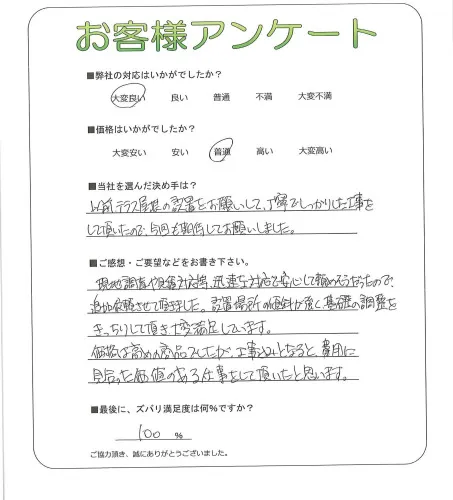 お客様アンケート
■弊社の対応はいかがでしたか?
大変良い 良い 普通 不満 大変不満
■価格はいかがでしたか?
大変安い 安い 普通 高い 大変高い
■当社を選んだ決め手は?
以前テラス屋根の設置をお願いして、丁寧でしっかりした工事を
して頂いたので、今回も期待してお願いしました。
■ご感想・ご要望などをお書き下さい。
現地調査や見積対応等、迅速な対応で安心して頼めそうだったので、
追加依頼させて頂きました。設置場所の傾斜が強く基礎の調整を
きっちりして頂き大変満足しています。
価格は高めの商品でしたが、工事込みとなると、費用に
見合った価値のある仕事をして頂いたと思います。
■最後に、ズバリ満足度は何%ですか?
100 %
ご協力頂き、誠にありがとうございました。